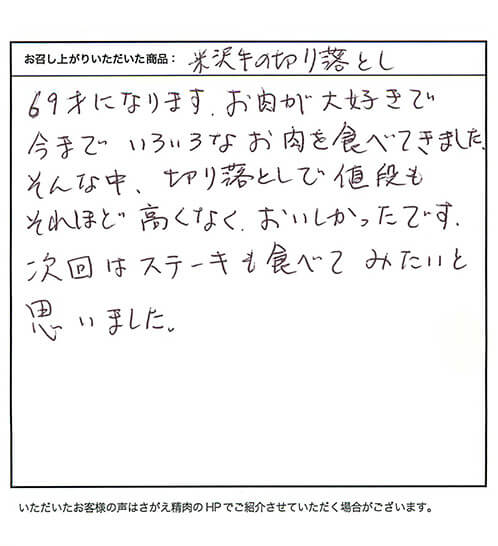 お召し上がりいただいた商品： 米沢牛の切り落とし
69才になります．お肉が大好きで
今まで いろいろな お肉を食べてきました．
そんな中、切り落としで値段も
それほど 高くなく．おいしかったです．
次回はステーキも食べて みたいと
思いました。
いただいたお客様の声はさがえ精肉のHPでご紹介させていただく場合がございます。